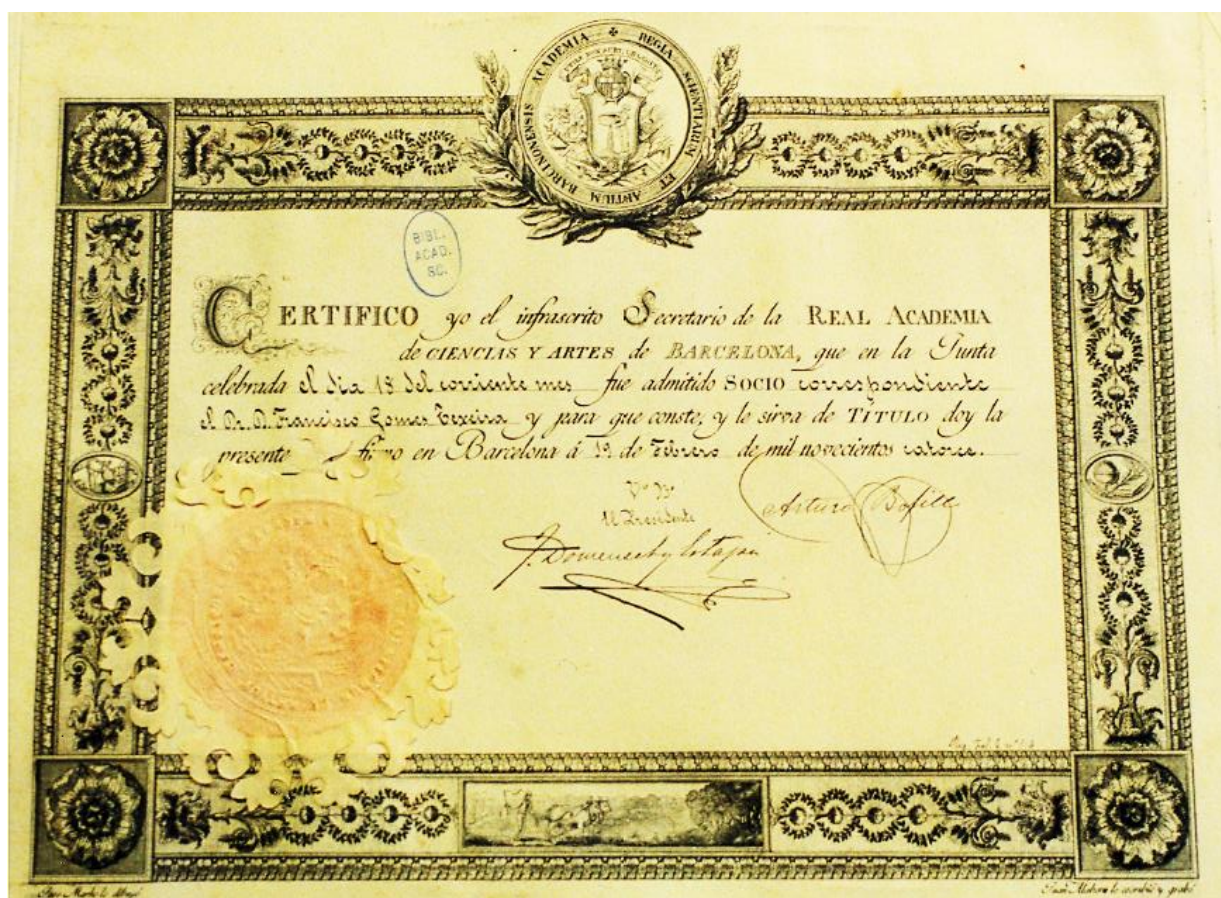 ACADEMIA REGIA SCIENTIARUM ET ARTIUM BARCINONENSIS
BIBL.
ACAD.
SC.
CERTIFICO yo el infrascrito Secretario de la REAL ACADEMIA
de CIENCIAS Y ARTES de BARCELONA, que en la Junta
celebrada el dia 18 del corriente mes fue admitido SOCIO correspondiente
el Dr. D. Francisco Gomes Texeira y para que conste, y le sirva de TÍTULO doy la
presente firmo en Barcelona á 19 de Febrero de mil novecientos catorce.
Vº Bº
El Presidente
Arturo Bofill
J. Domenech y Estapá